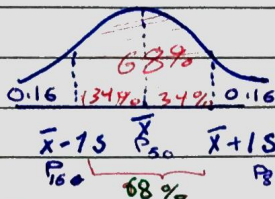 68%
0.16 34% 34% 0.16
x̄-1S x̄ x̄+1S
P16 P50 P8
68%